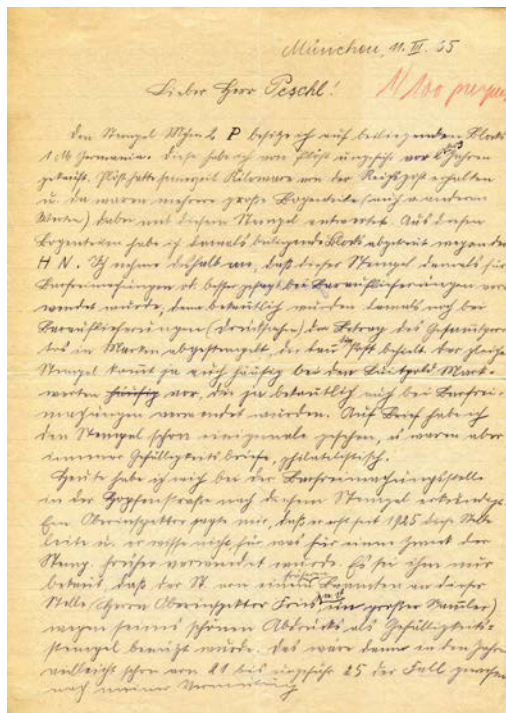 München, 11. III. 35
Lieber Herr Peschl!
Den Stempel Mchn 2 P besitze ich auf beiliegenden Blocks
1 M Germania. Diese habe ich von Plöst ungefähr vor Jahren
gekauft. Plöst hatte seinerzeit Kiloware von der Reichspost erhalten
u. da waren mehrere große Bogenteile (auch v. anderen
Werten) dabei mit diesem Stempel entwertet. Aus diesen
Bogenteilen habe ich damals beiliegende Blocks abgetrennt wegen den
H N. Ich nehme deshalb an, daß dieser Stempel damals für
Barfreimachungen od. besser gesagt bei Bareinlieferungen ver-
wendet wurde, denn bekanntlich wurden damals noch bei
Bareinlieferungen (Drucksachen) der Betrag des Gesamtpor-
tos in Marken abgestempelt, die dann die Post behielt. Der gleiche
Stempel kommt ja auch häufig bei den Luitpold Mark-
werten häufig vor, die ja bekanntlich auch bei Barfrei-
machungen verwendet wurden. Auf Brief habe ich
den Stempel schon einigemale gesehen, es waren aber
immer Gefälligkeitsbriefe, philatelistisch.
Heute habe ich mich bei der Barfreimachungsstelle
in der Hopfenstraße nach diesem Stempel erkundigt.
Ein Oberinspektor sagte mir, daß er erst seit 1925 diese Stelle
leite u. er wisse nicht für was für einen Zweck der
Stemp. früher verwendet wurde. Es sei ihm nur
bekannt, daß der St. von einem früheren Beamten an dieser
Stelle (Herrn Oberinspektor ein großer Sammler)
wegen seines schönen Abdrucks als Gefälligkeits-
stempel benützt wurde. Das war dann in den Jahren
vielleicht schon von 21 bis ungefähr 25 der Fall gewesen
nach meiner Vermutung